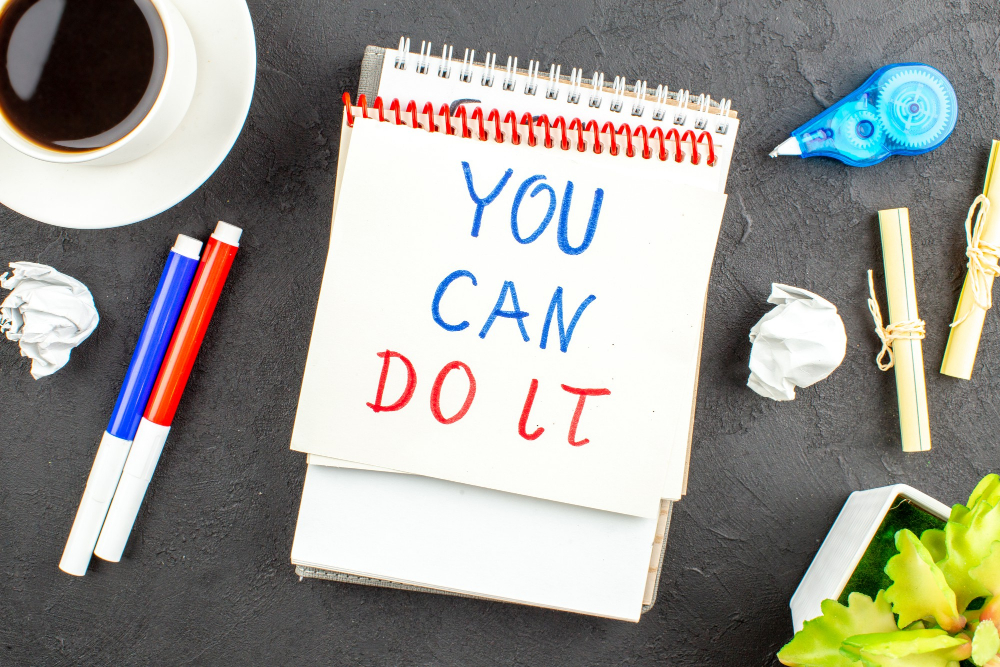 YOU
CAN
DO IT